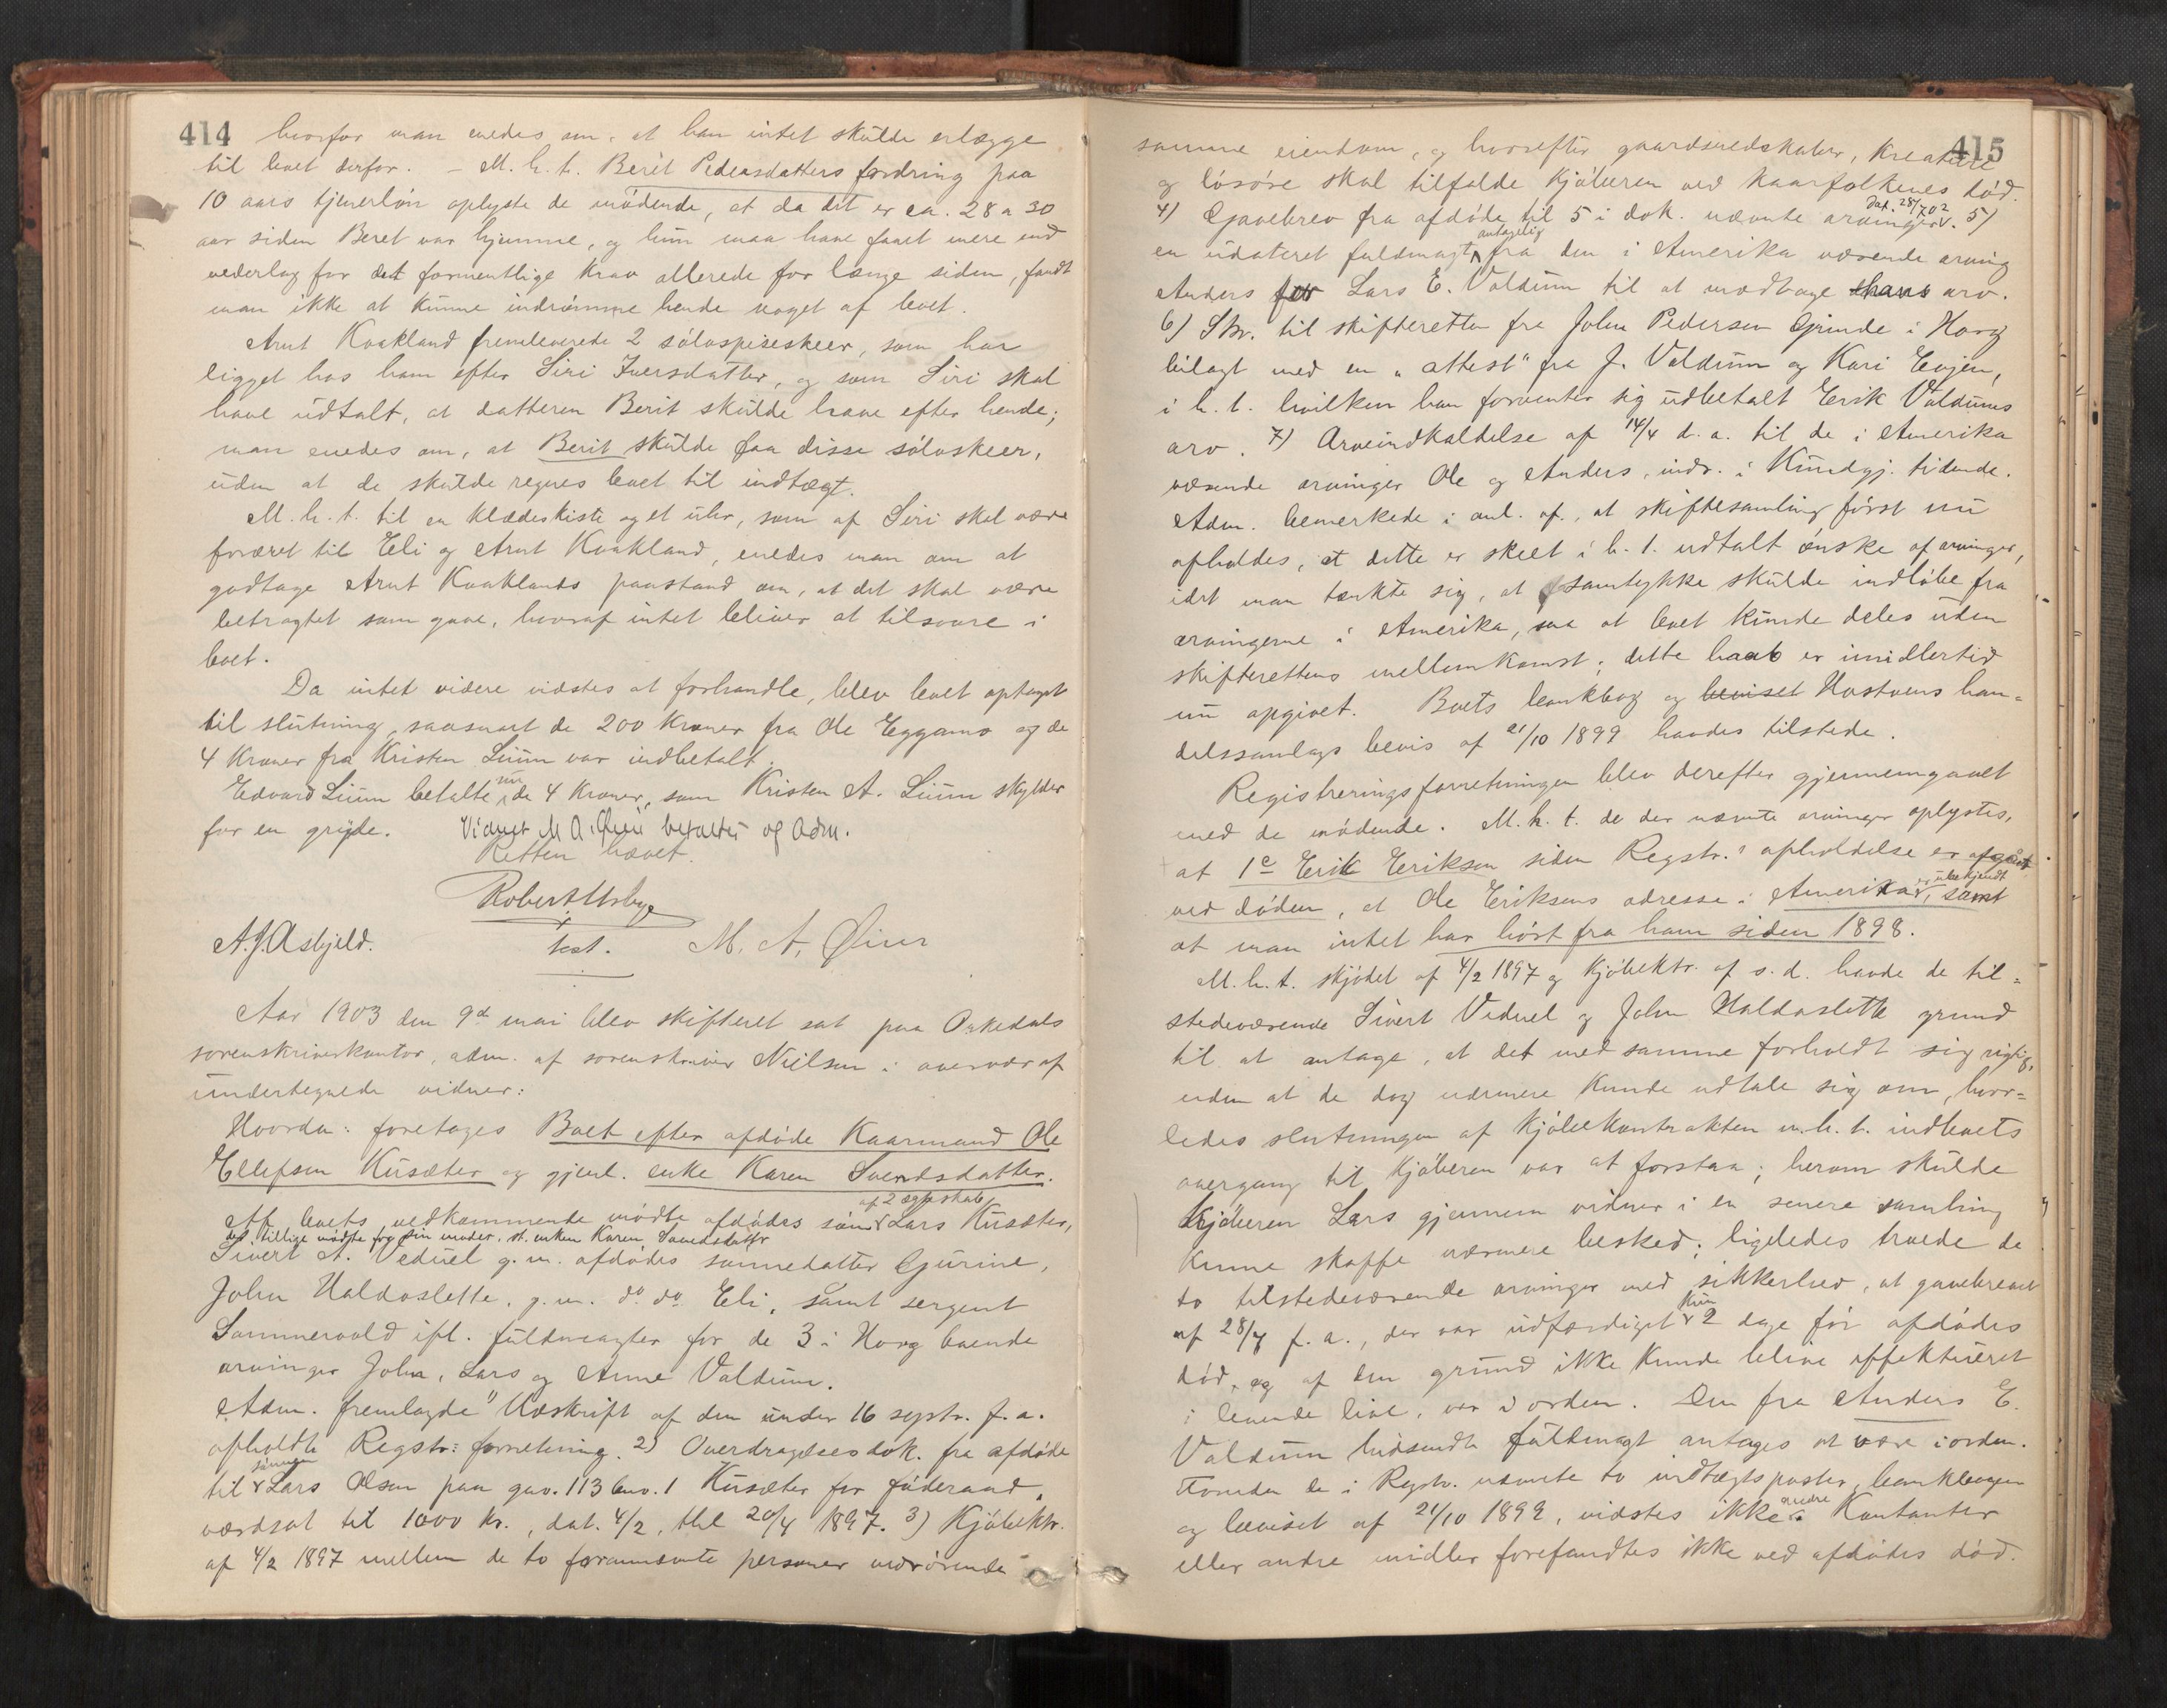 414 hvorfor man enedes om, at han intet skulde erlægge
til boet derfor. – M. h. t. Berit Pedersdatters fordring paa
10 aars tjenerløn oplyste de mødende, at da det er ca. 28 a 30
aar siden Beret var hjemme, og hun maa have faaet mere end
vederlag for det formentlige krav allerede for længe siden, fandt
man ikke at kunne indrømme hende noget af boet.
Arnt Kvakland fremleverede 2 sølvspiseskeer, som har
ligget hos ham efter Siri Iversdatter, og som Siri skal
have udtalt, at datteren Berit skulde have efter hende;
man enedes om, at Berit skulde faa disse sølvskeer,
uden at de skulde regnes boet til indtægt.
M. h. t. til en klædeskiste og et uhr, som af Siri skal være
foræret til Eli og Arnt Kvakland, enedes man om at
godtage Arnt Kvaklands paastand om, at det skal være
betragtet som gave, hvoraf intet bliver at tilsvare i
boet.
Da intet videre vidstes at forhandle, blev boet optaget
til slutning, saasnart de 200 kroner fra Ole Eggamo og de
4 kroner fra Kristen Lium var indbetalt.
Edvard Lium betalte nu de 4 kroner, som Kristen A. Lium skylder
for en gryde. Vidnet M A. Øien betaltes af adm.
Retten hævet.
Robert Utsbye
A. J. Asbjeld. kst. M. A. Øien
Aar 1903 den 9d mai blev skifteret sat paa Orkedals
sorenskriverkontor, adm. af sorenskriver Nielsen i overvær af
undertegnede vidner:
Hvorda: foretages Boet efter afdøde Kaarmand Ole
Ellefsen Kusæter og gjenl. enke Karen Svendsdatter.
Af boets vedkommende mødte afdødes søn af 2 ægteskab Lars Kusæter,
der tillige mødte for sin moder, st. enken Karen Svendsdatter
Sivert A. Veduel g. m. afdødes sønnedatter Gurine,
John Haldoslette, g. m. do do Eli, samt sergent
Sommervold ifl. fuldmagter for de 3 i Horg boende
arvinger John, Lars og Anne Valdum.
Adm. fremlagde 1) Udskrift af den under 16 septr. f. a.
afholdte Regstr: forretning. 2) Overdragelsesdok. fra afdøde
til sønnen Lars Olsen paa gno. 113 bno. 1 Kusæter for føderaad,
værdsat til 1000 kr., dat. 4/2, thl 20/4 1897. 3) Kjøbektr.
af 4/2 1897 mellem de to forannævnte personer vedrørende
415
samme eiendom, og hvorefter gaardsredskaber, kreature
og løsøre skal tilfalde kjøberen ved kaarfolkenes død.
4) Gavebrev fra afdøde til 5 i dok. nævnte arvinger dat. 28/7 02. 5)
en udateret fuldmagt antagelig fra den i Amerika værende arving
Anders for Lars E. Valdum til at modtage hans arv.
6) Skr. til skifteretten fra John Pedersen Grinde i Horg
bilagt med en „attest" fra J. Valdum og Kari Evjen,
i h. t. hvilken han forventer sig udbetalt Erik Valdums
arv. 7) Arveindkaldelse af 14/4 d. a. til de i Amerika
værende arvinger Ole og Anders, indr. i Kundgj. tidende.
Adm. bemerkede i anl. af, at skiftesamling først nu
afholdes, at dette er skeet i h. t. udtalt ønske af arvinger,
idet man tænkte sig, at samtykke skulde indløbe fra
arvingerne i Amerika, saa at boet kunde deles uden
skifterettens mellemkomst; dette haab er imidlertid
nu opgivet. Boets bankbog og beviset Hostvens han-
delssamlags bevis af 21/10 1899 havdes tilstede.
Registreringsforretningen blev derefter gjennemgaaet
med de mødende. M. h. t. de der nævnte arvinger oplystes,
at 1e Erik Eriksen siden Regstr.s afholdelse er afgaaet
ved døden, at Ole Eriksens adresse i Amerika er ubekjendt, samt
at man intet har hørt fra ham siden 1898.
M. h. t. skjødet af 4/2 1897 og kjøbektr. af s. d. havde de til-
stedeværende Sivert Veduel og John Haldoslette grund
til at antage, at det med samme forholdt sig rigtig,
uden at de dog nærmere kunde udtale sig om, hvor-
ledes slutningen af kjøbekontrakten m. h. t. indboets
overgang til kjøberen var at forstaa; herom skulde
kjøberen Lars gjennem vidner i en senere samling
kunne skaffe nærmere besked; ligeledes troede de
to tilstedeværende arvinger med sikkerhed, at gavebrevet
af 28/7 f. a., der var udfærdiget kun 2 dage før afdødes
død, og af den grund ikke kunde blive effektueret
i levende live, var i orden. Den fra Anders E.
Valdum hidsendte fuldmagt antages at være i orden.
Foruden de i Regstr. nævnte to indtægtsposter, bankbogen
og beviset af 21/10 1899, vidstes ikke andre. Kontanter
eller andre midler forefandtes ikke ved afdødes død.